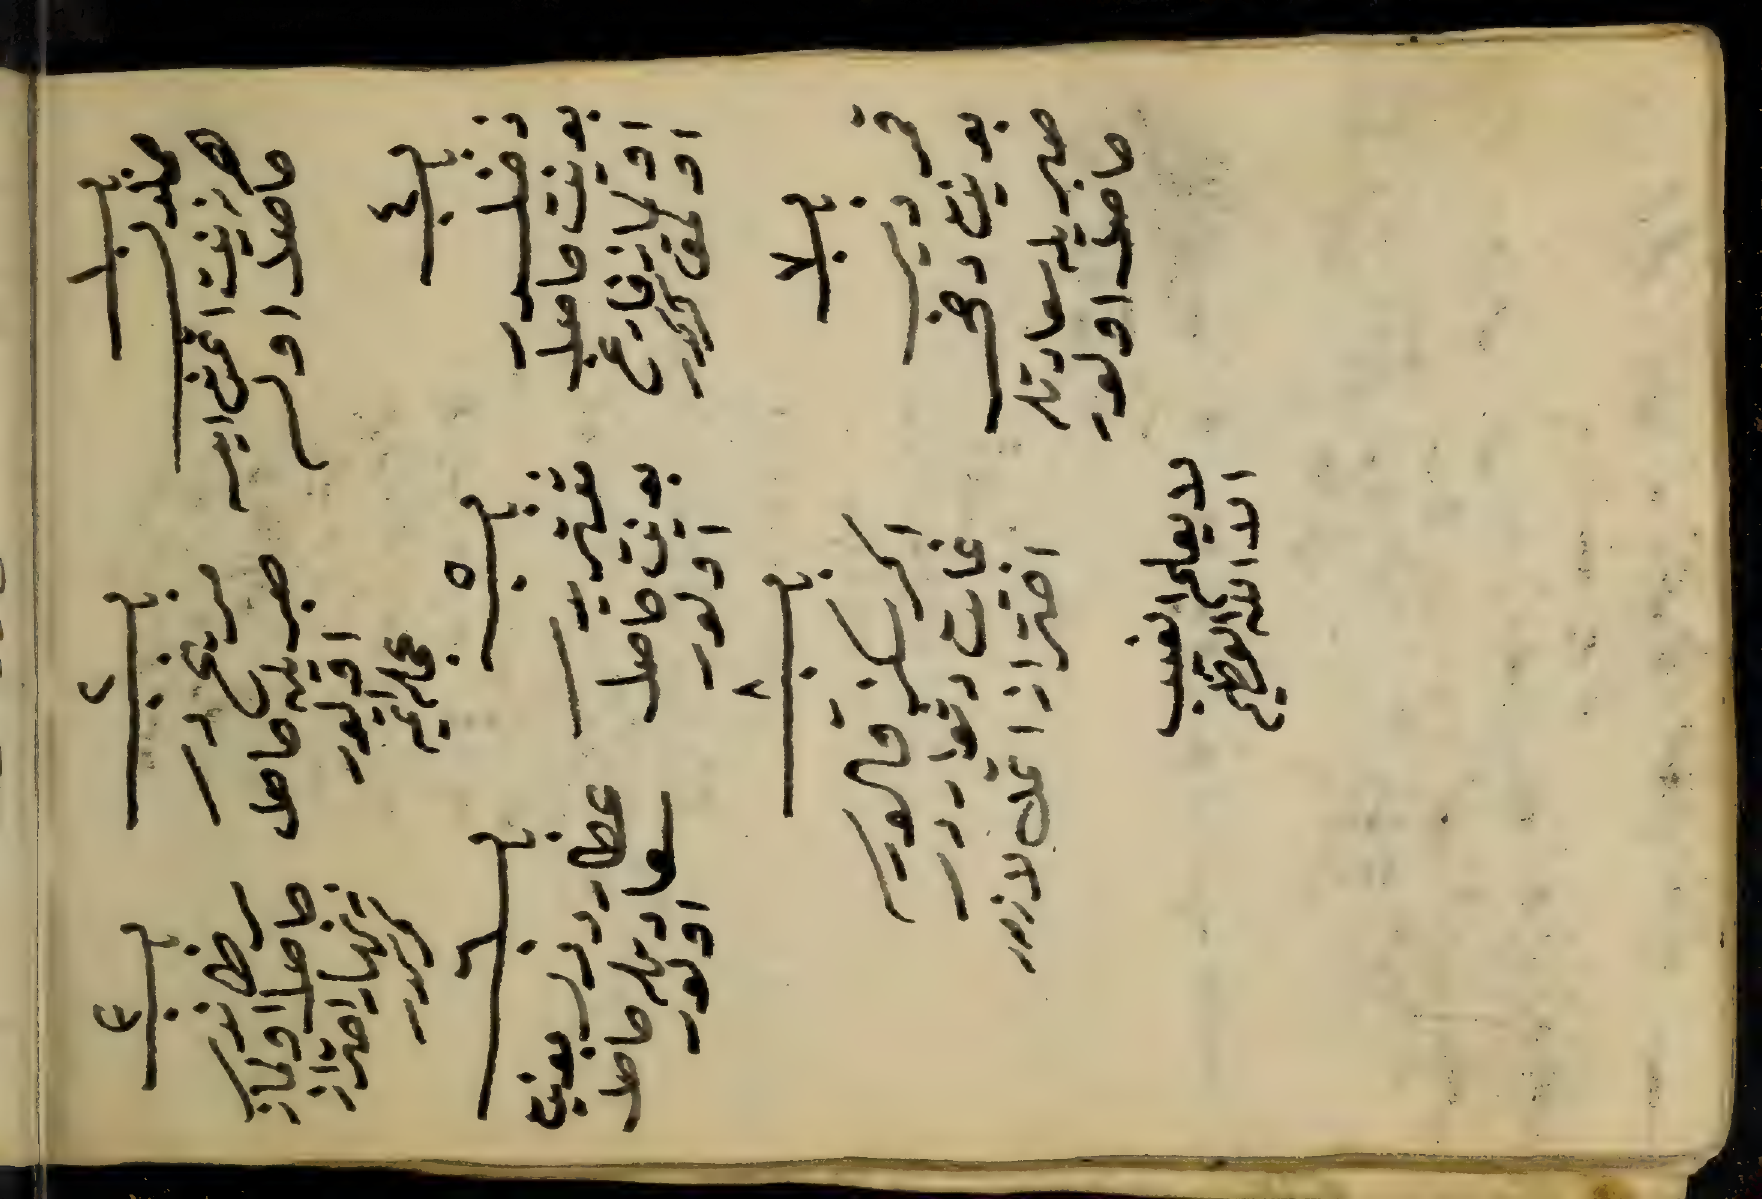 باب ١
هر نه نیت اتدك ایسه
حاصل اولور
باب ٢
مریخدر
صبر یله حاصل
اولور
عجله ایتمه
باب ٣
حاصل اولماز
احتراز
كركدر
باب ٤
زحلدر
بو نیت حاصل
اولماز فارغ
اولمق كركدر
باب ٥
مشتریدر
بو نیت حاصل
اولور
باب ٦
عطارددر بو نیت
سعادتله حاصل
اولور
باب ٧
قمردر
بو نیت دخی
صبر یله سعادتله
حاصل اولور
باب ٨
اكر سكز قالور
غایت دشواردر
احتراز اتمك لازمدر
لا یعلم الغیب
الا الله العظیم